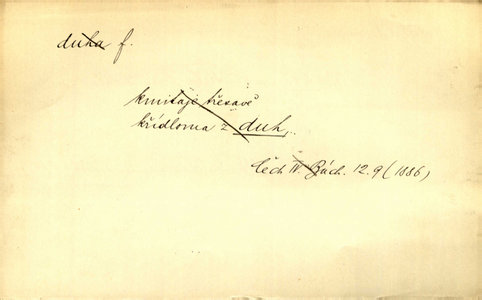 duha f.
kmitaje třesavě
křídloma z duh,
Čech IV. Bách. 12.9 (1886)